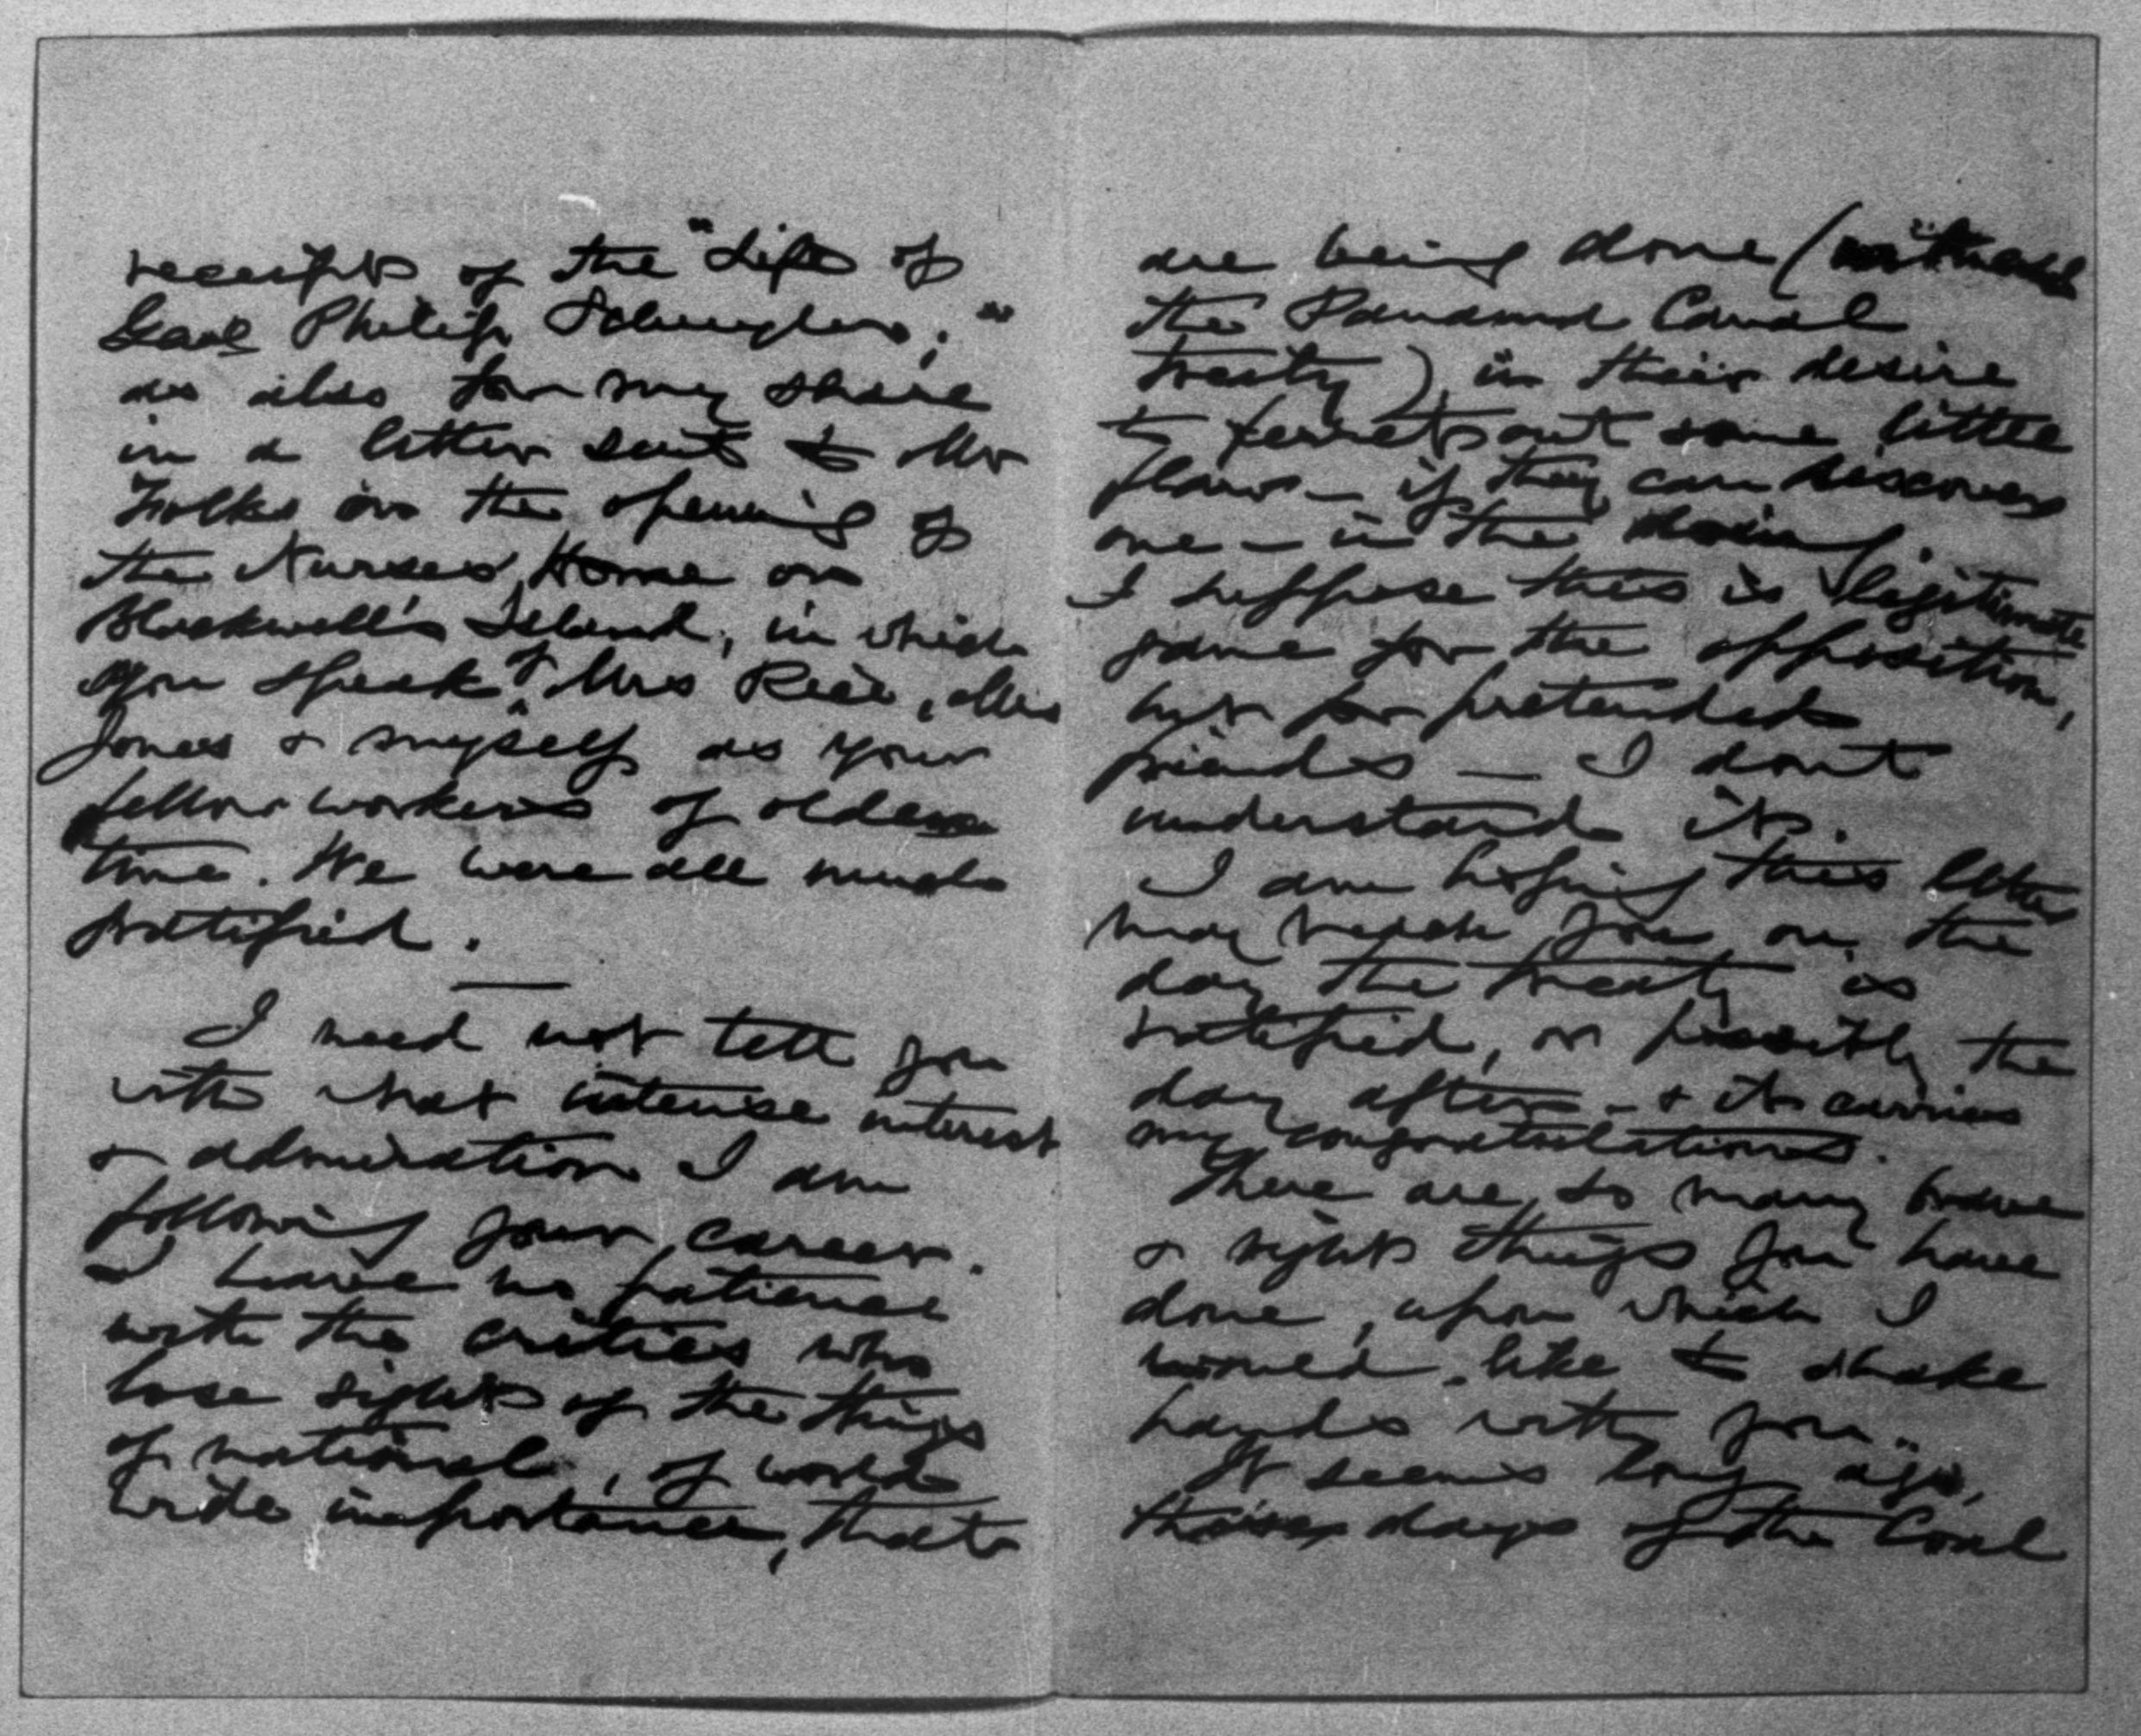 receipt of the "Life of
Genl Philip Schuyler;"
as also for my share
in a letter sent to Mr
Folks on the opening of
the Nurses' Home on
Blackwell's Island, in which
you speak of Mrs Rice, Mrs
Jones & myself as your
fellow workers of olden
time. We were all much
gratified.
I need not tell you
with what intense interest
& admiration I am
following your career.
I have no patience
with the critics who
lose sight of the things
of national, of world
wide importance, that
are being done (witness
the Panama Canal
treaty) in their desire
to ferret out some little
flaw – if they can discover
one – in the doing.
I suppose this is legitimate
game for the opposition,
but for pretended
friends – I dont
understand it.
I am hoping this letter
may reach you on the
day the treaty is
ratified, or possibly the
day after – & it carries
my congratulations.
There are so many brave
& right things you have
done, upon which I
would like to shake
hands with you.
It seems long ago,
those days of the Coal